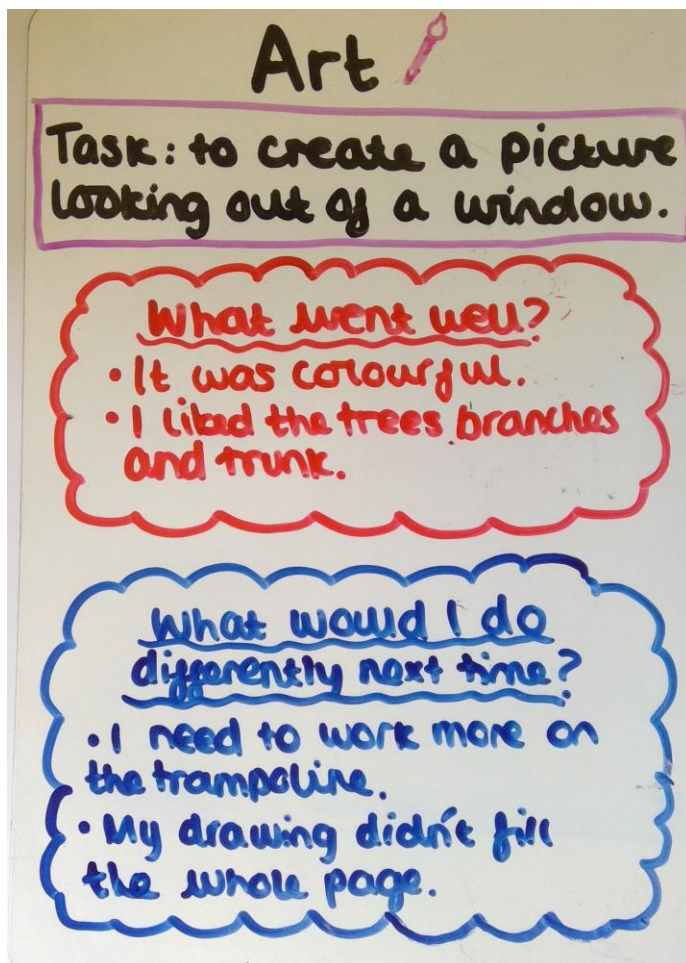 Art
Task: to create a picture
looking out of a window.
What went well?
• It was colourful.
• I liked the trees branches
and trunk.
What would I do
differently next time?
• I need to work more on
the trampoline.
• My drawing didn't fill
the whole page.